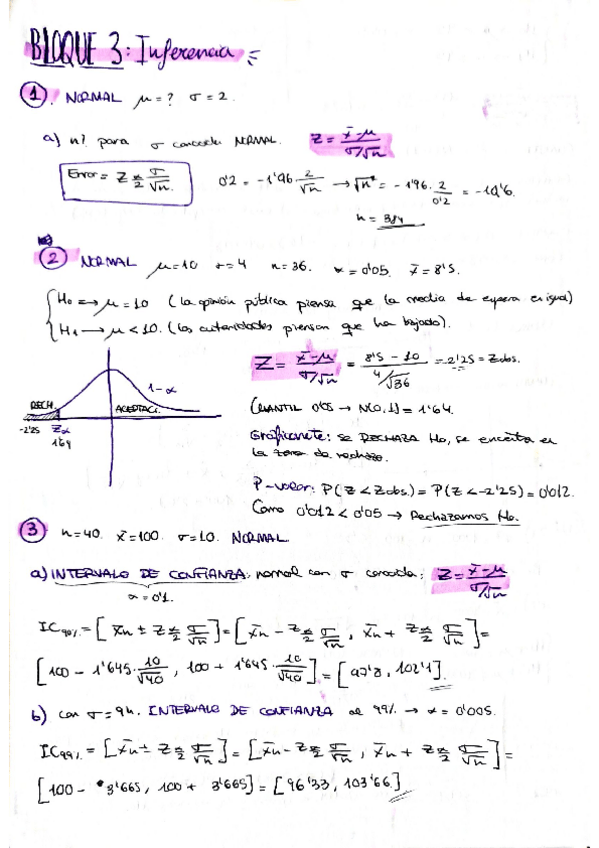 BLOQUE 3: Inferencia
1. NORMAL μ=? σ=2.
a) n? para σ conocida NORMAL. Z = x̄-μ / σ/√n
Error = Z α/2 σ/√n. 0'2 = -1'96 · 2/√n → √n = -1'96 · 2/0'2 = -19'6.
n = 384
2 NORMAL μ=10 σ=4 n=36. α=0'05. x̄=8'5.
H₀ → μ=10 (la opinión pública piensa que la media de espera es igual)
H₁ → μ<10. (las autoridades piensan que ha bajado).
Z = x̄-μ / σ/√n = 8'5 - 10 / 4/√36 = -2'25 = Zobs.
1-α
RECH. ACEPTACI.
-2'25 Zα
1'64
CUANTIL 0'05 → N(0,1) = 1'64.
Gráficamente: se RECHAZA H₀, se encuentra en
la zona de rechazo.
P-valor: P(Z < Zobs.) = P(Z < -2'25) = 0'012.
Como 0'012 < 0'05 → Rechazamos H₀.
3 n=40. x̄=100. σ=10. NORMAL.
a) INTERVALO DE CONFIANZA: normal con σ conocida: Z = x̄-μ / σ/√n
α=0'1.
IC90% = [x̄n ± Z α/2 σ/√n] = [x̄n - Z α/2 σ/√n, x̄n + Z α/2 σ/√n] =
[100 - 1'645 · 10/√40, 100 + 1'645 · 10/√40] = [97'3, 102'1].
b) con σ=9n. INTERVALO DE CONFIANZA al 99% → α=0'005.
IC99% = [x̄n ± Z α/2 σ/√n] = [x̄n - Z α/2 σ/√n, x̄n + Z α/2 σ/√n] =
[100 - 3'665, 100 + 3'665] = [96'33, 103'66]